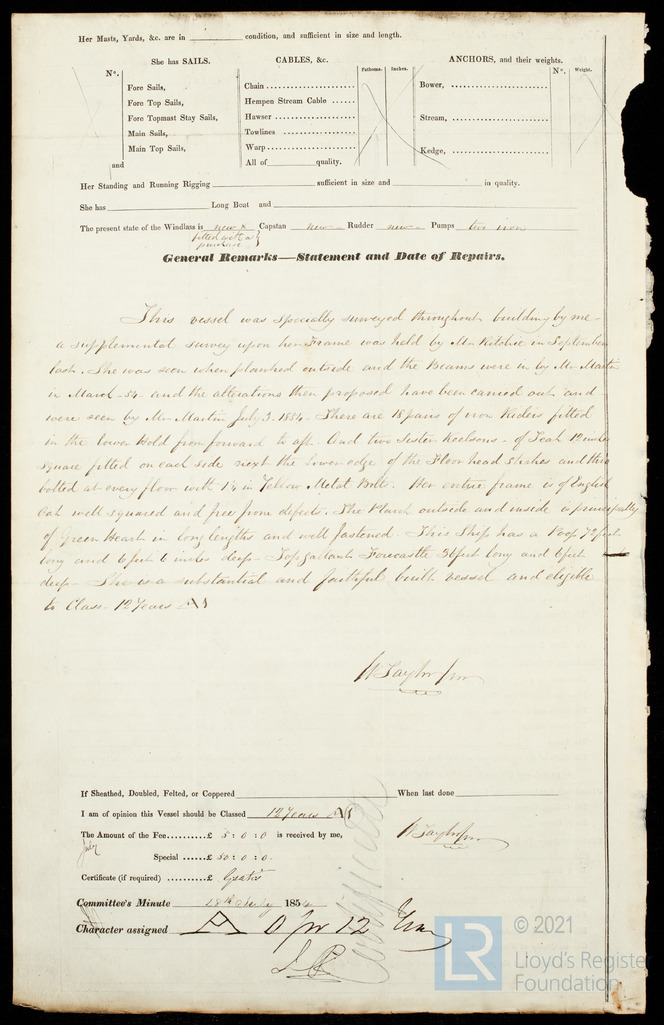 Her Masts, Yards, &c. are in condition, and sufficient in size and length.
She has SAILS. CABLES, &c. Fathoms. Inches. ANCHORS, and their weights. Nº. Weight.
Nº.
Fore Sails, Chain Bower,
Fore Top Sails, Hempen Stream Cable
Fore Topmast Stay Sails, Hawser Stream,
Main Sails, Towlines
Main Top Sails, Warp Kedge,
and All of quality.
Her Standing and Running Rigging sufficient in size and in quality.
She has Long Boat and
The present state of the Windlass is new x Capstan new Rudder new Pumps two iron
fitted with a
purchase
General Remarks—Statement and Date of Repairs.
This vessel was specially surveyed throughout building by me -
a supplemental survey upon her Frame was held by Mr Ritchie in September
last. She was seen when planked outside and the Beams were in by Mr Martin
in March -54- and the alterations then proposed have been carried out and
were seen by Mr Martin July 3. 1854. There are 18 pairs of iron Riders fitted
in the lower Hold from forward to aft. And two Sister Keelsons - of Teak 12 inches
square fitted on each side next the lower edge of the Floor head Strakes and thro
bolted at every floor with 1¼ in Yellow Metal Bolts. Her entire frame is of English
Oak well squared and free from defects. The Plank outside and inside is principally
of Green Heart in long lengths and well fastened. This Ship has a Poop 72 feet
long and 6 feet 6 inches deep - Topgallant Forecastle 36 feet long and 6 feet
deep - She is a substantial and faithful built vessel and eligible
to Class - 12 Years A1
W Taylor Jnr
If Sheathed, Doubled, Felted, or Coppered When last done
I am of opinion this Vessel should be Classed 12 Years A1
The Amount of the Fee.........£ 5 : 0 : 0 is received by me, W Taylor Jnr
July
Special ......£ 50 : 0 : 0.
Certificate (if required) ..........£ Gratis
Committee's Minute 28th July 1854
Character assigned A 1 for 12 Years
© 2021
LR
Lloyd's Register
Foundation